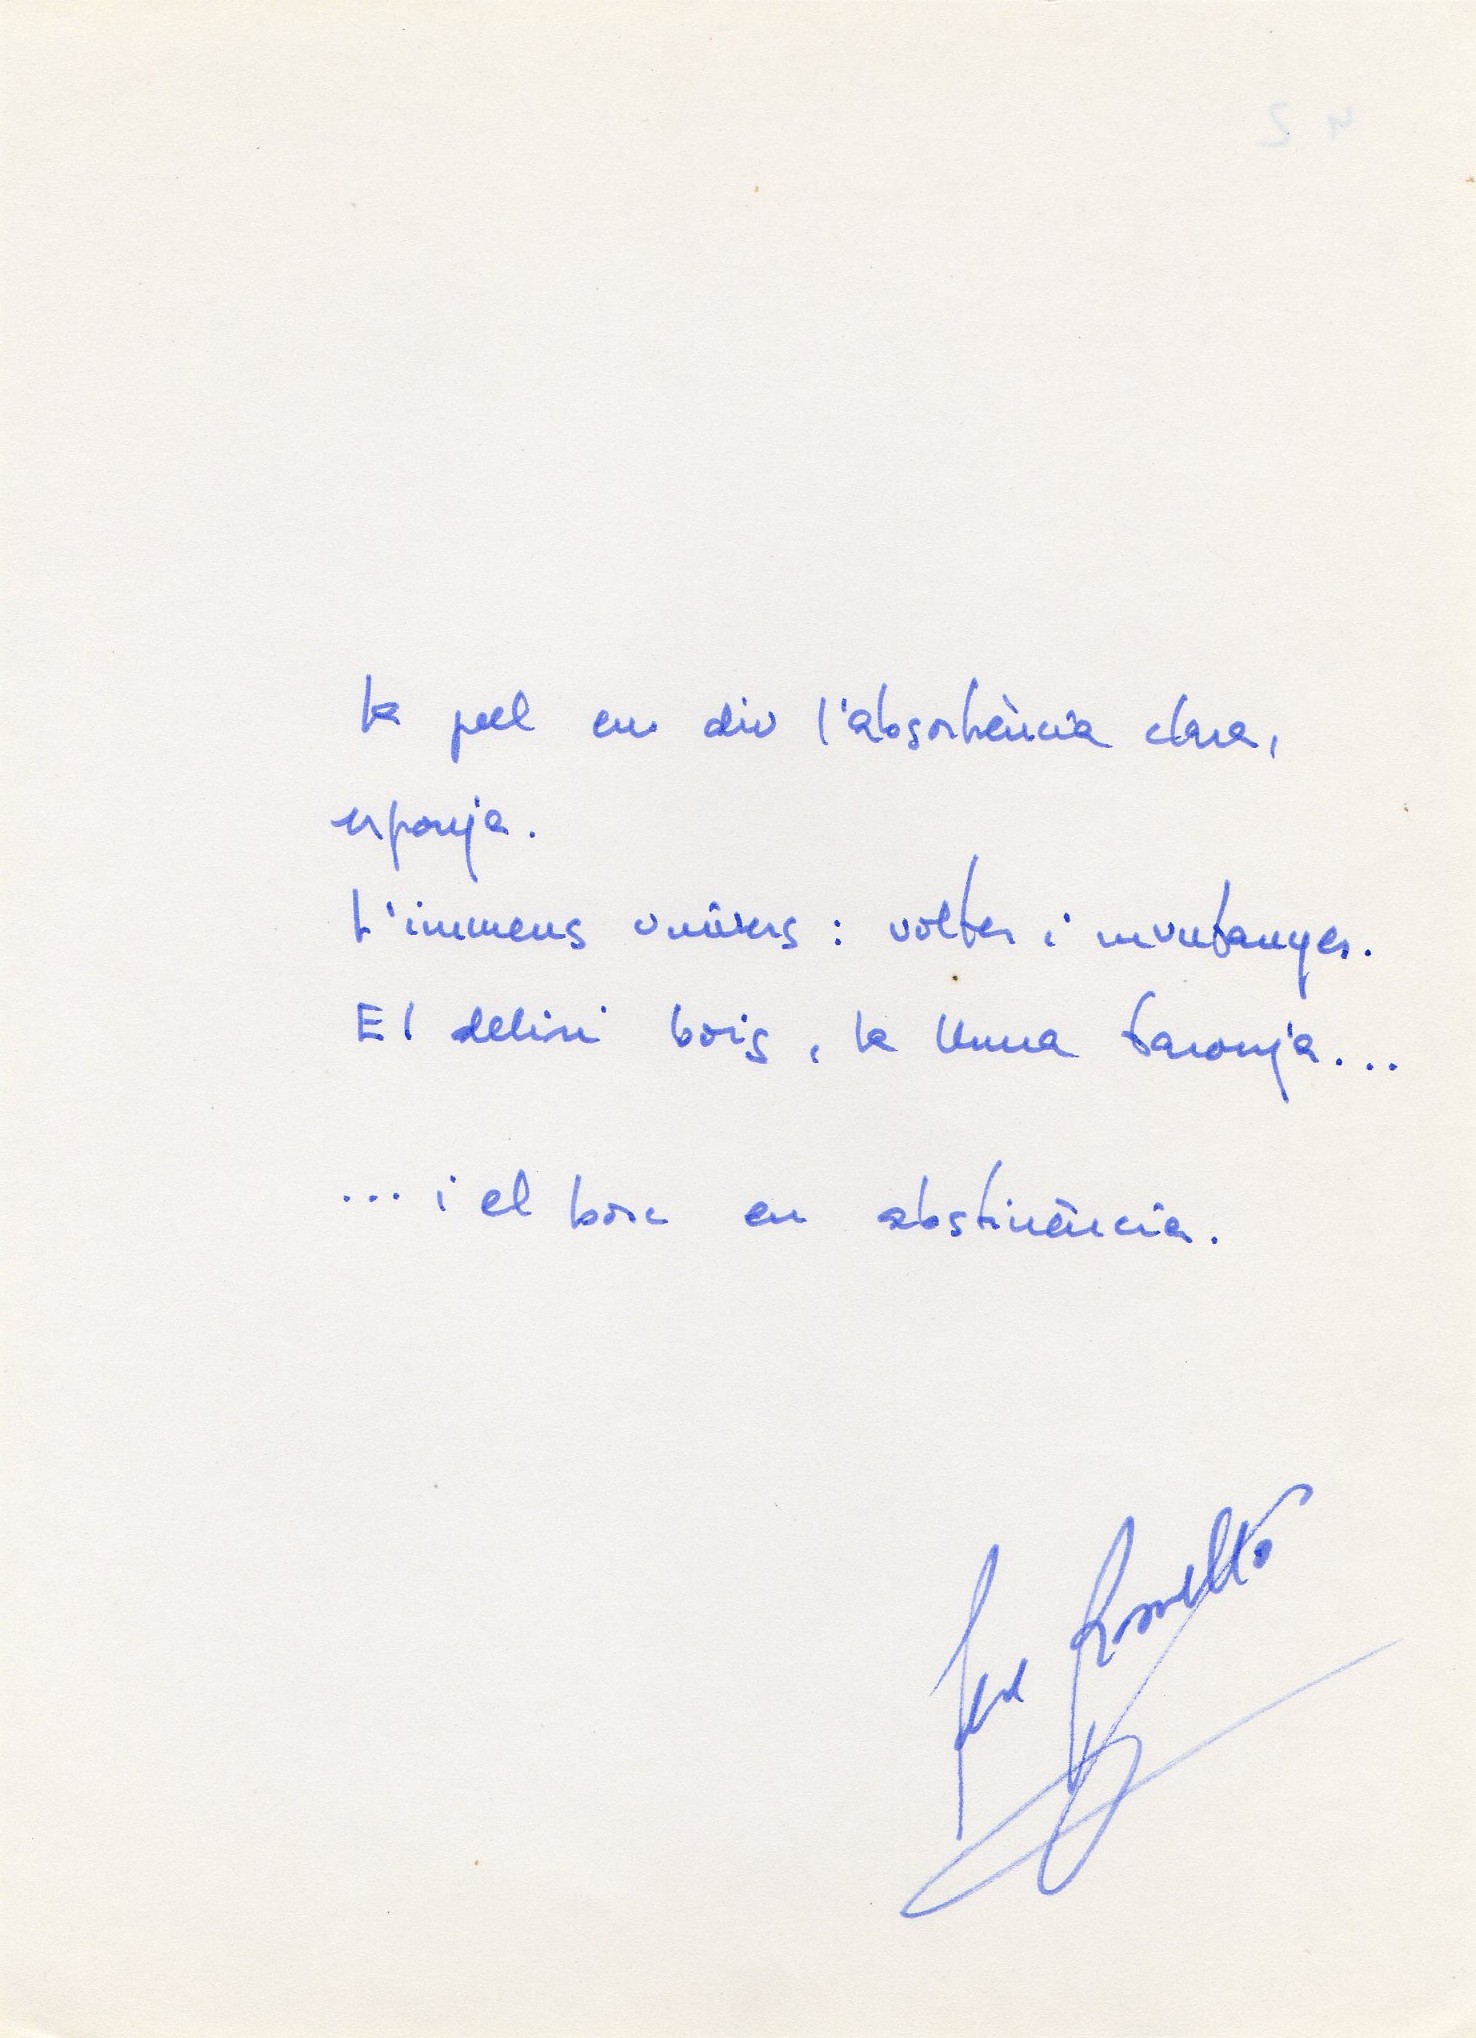 La pell em diu l'absorbència clara,
esponja.
L'immens univers: voltes i muntanyes.
El deliri boig, la lluna taronja...
... i el bosc en abstinència.